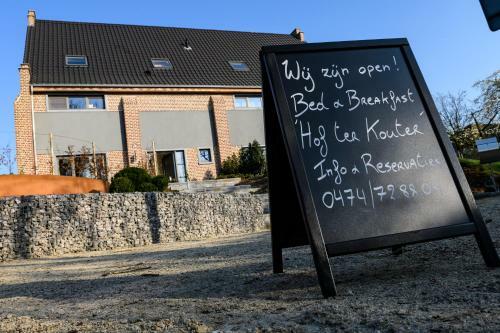 Wij zijn open!
Bed & Breakfast
Hof ter Kouter
Info & Reservatie
0474/72 88 04